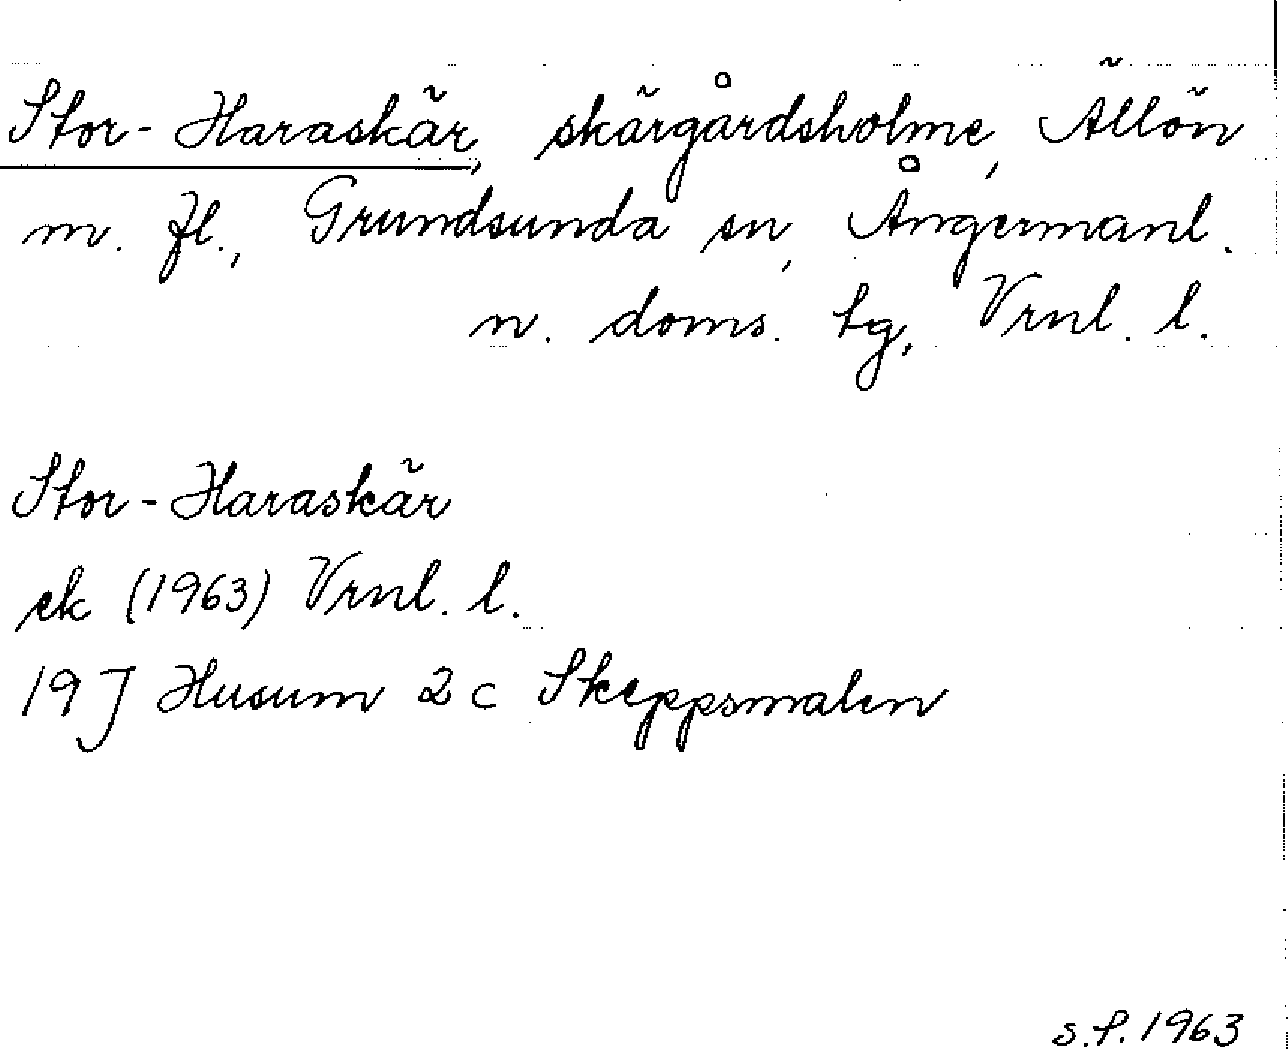 Stor-Haraskär, skärgårdsholme, Ällön
m. fl., Grundsunda sn, Ångermanl.
n. doms. tg, Vrnl. l.
Stor-Haraskär
ek (1963) Vrnl. l.
19J Husum 2c Skeppsmalen
S.P. 1963